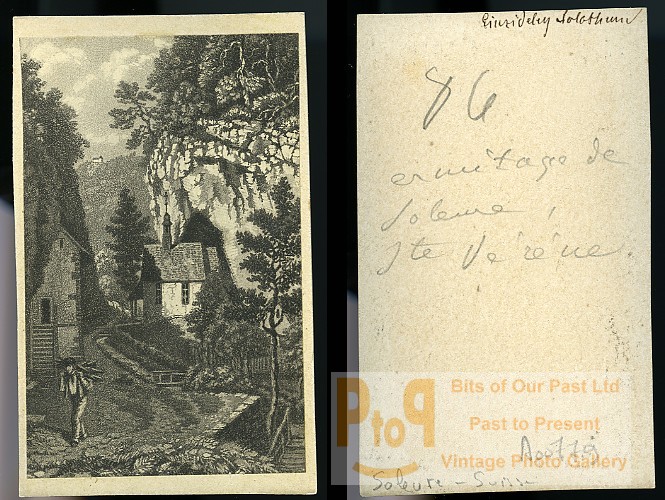 Einsideley Solothurn
86
ermitage de
Soleure,
Ste Vérène.
PtoP
Bits of Our Past Ltd
Past to Present
Vintage Photo Gallery
Soleure - Suisse